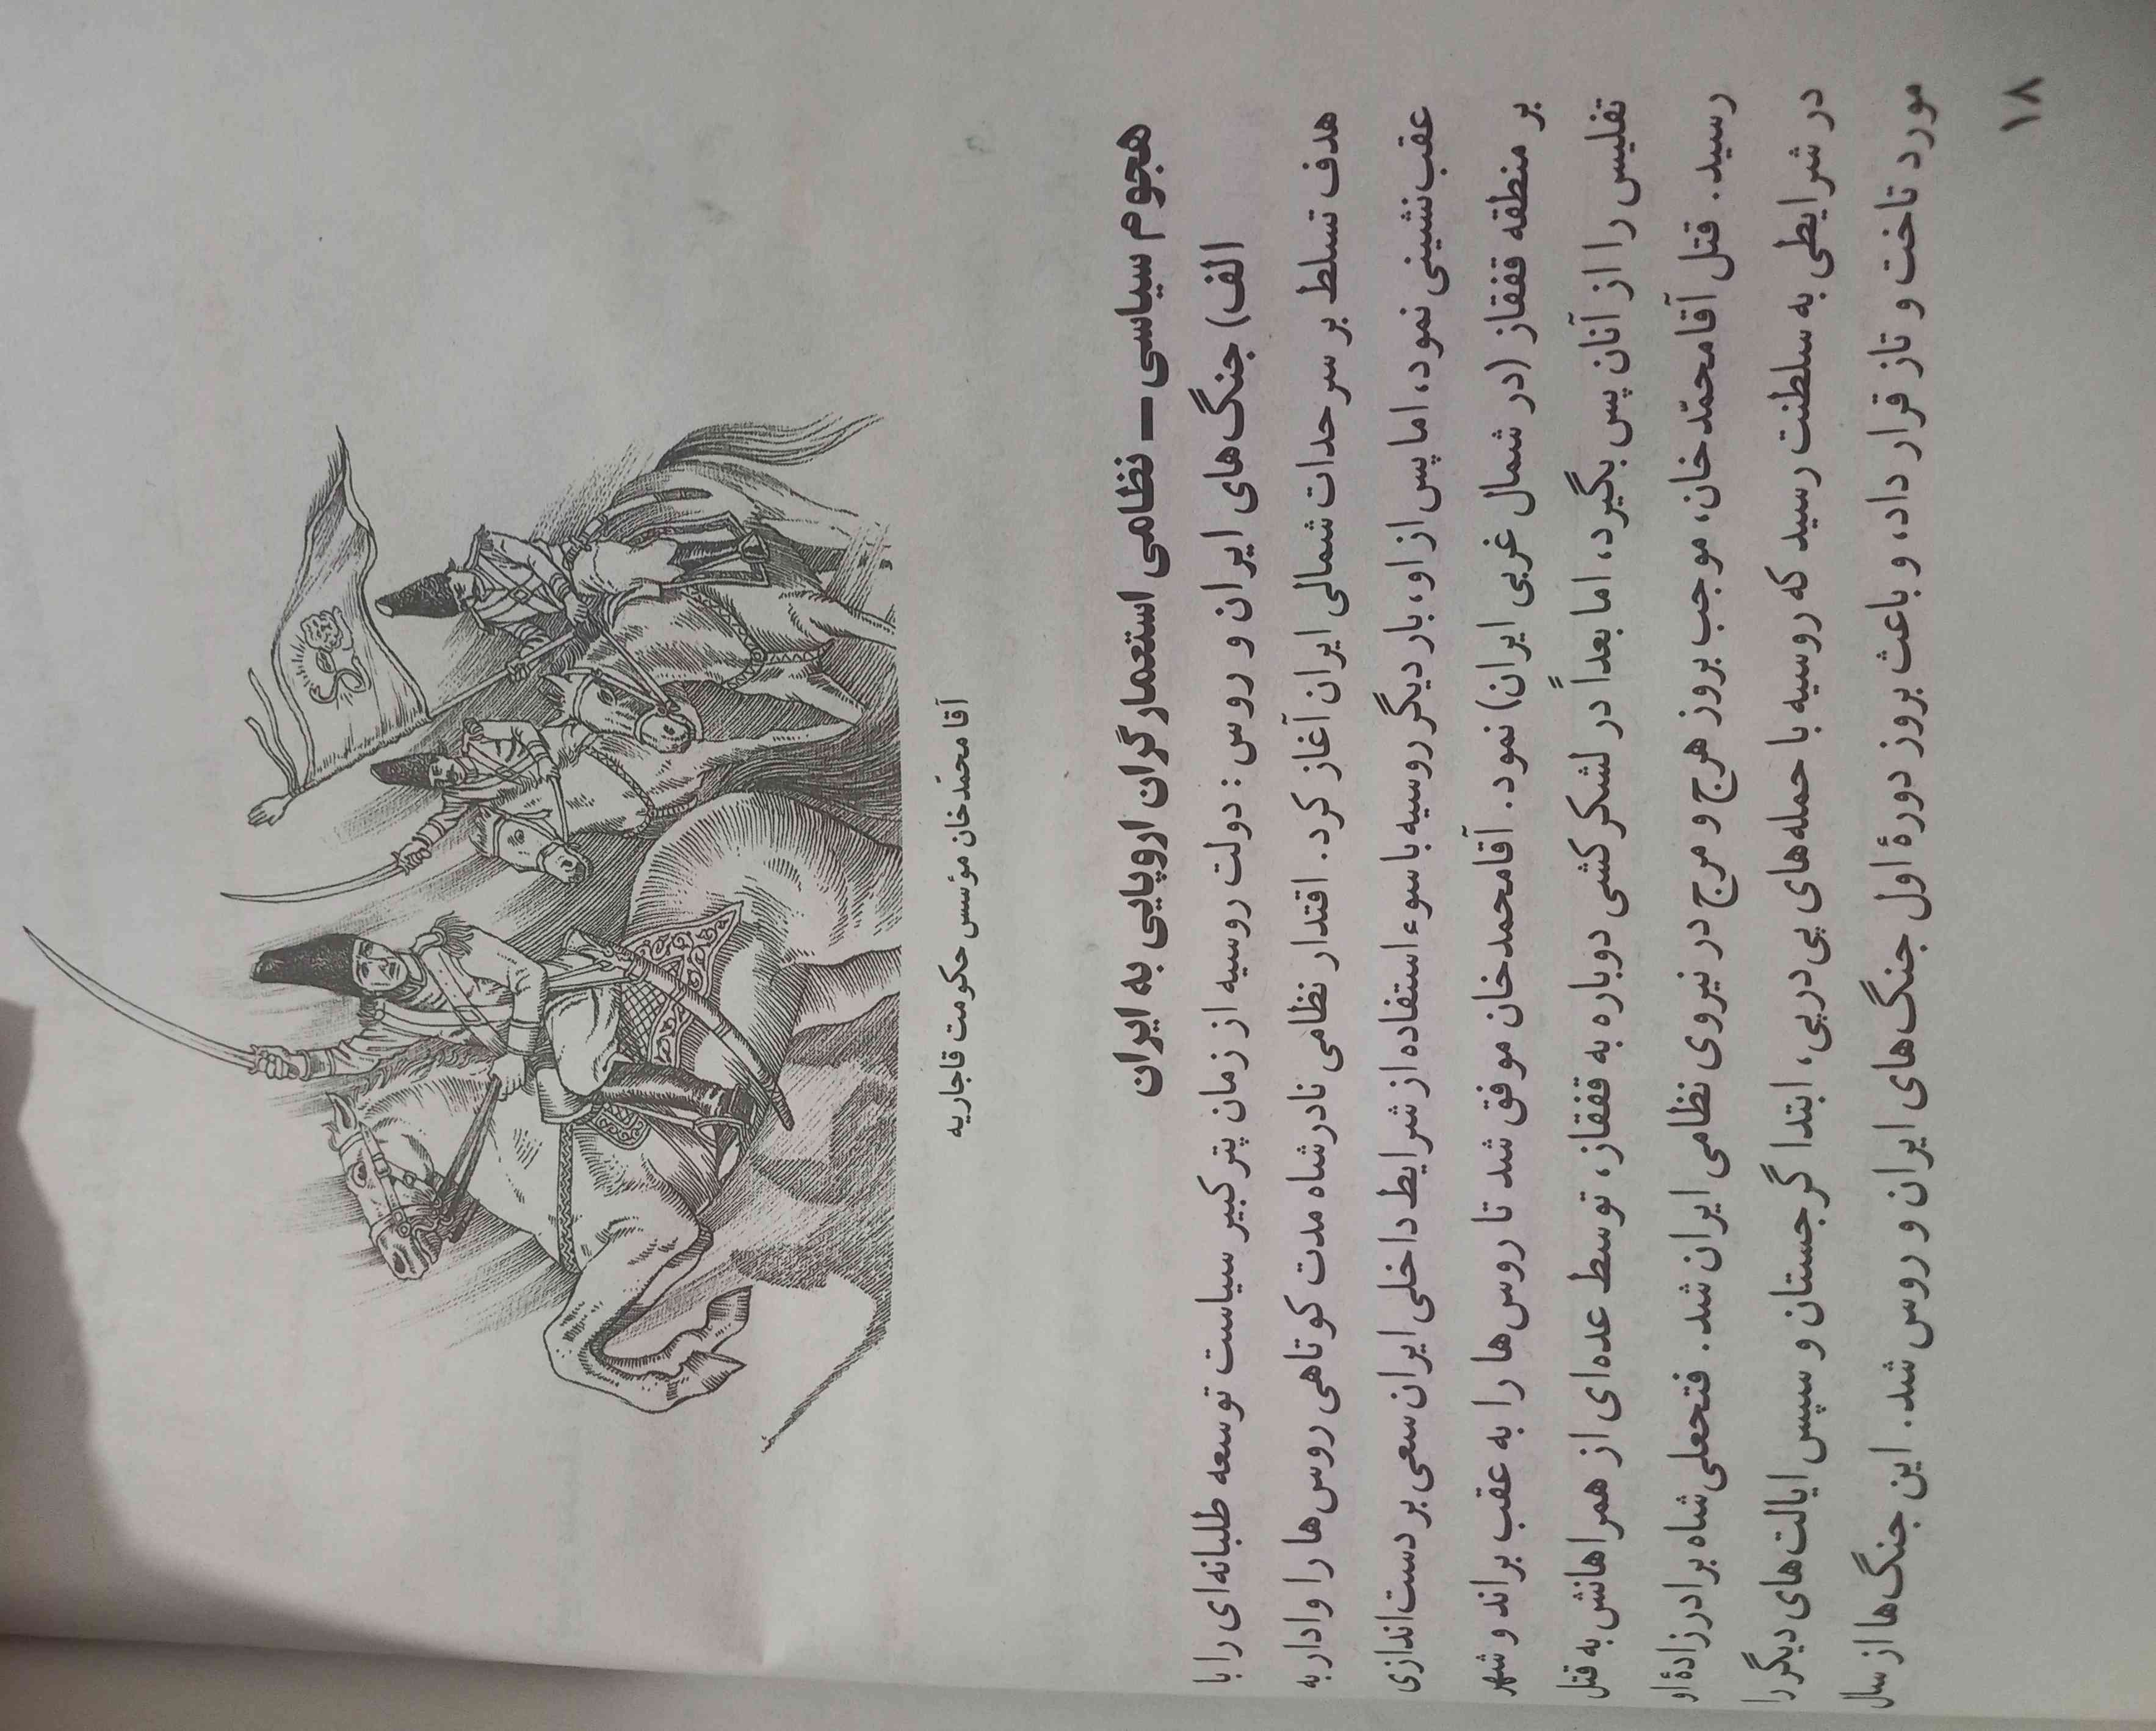 آقامحمّدخان مؤسس حکومت قاجاریه
هجوم سیاسی – نظامی استعمارگران اروپایی به ایران
الف) جنگ‌های ایران و روس: دولت روسیه از زمان پتر کبیر سیاست توسعه طلبانه‌ای را با
هدف تسلط بر سرحدات شمالی ایران آغاز کرد. اقتدار نظامی نادرشاه مدت کوتاهی روس‌ها را وادار به
عقب‌نشینی نمود، اما پس از او، بار دیگر روسیه با سوءاستفاده از شرایط داخلی ایران سعی بر دست‌اندازی
بر منطقه قفقاز (در شمال غربی ایران) نمود. آقامحمدخان موفق شد تا روس‌ها را به عقب براند و شهر
تفلیس را از آنان پس بگیرد، اما بعداً در لشکرکشی دوباره به قفقاز، توسط عده‌ای از همراهانش به قتل
رسید. قتل آقامحمّدخان، موجب بروز هرج و مرج در نیروی نظامی ایران شد. فتحعلی‌شاه برادرزادهٔ او
در شرایطی به سلطنت رسید که روسیه با حمله‌های پی‌درپی، ابتدا گرجستان و سپس ایالت‌های دیگر را
مورد تاخت و تاز قرار داد، و باعث بروز دورهٔ اول جنگ‌های ایران و روس شد. این جنگ‌ها از سال
۱۸